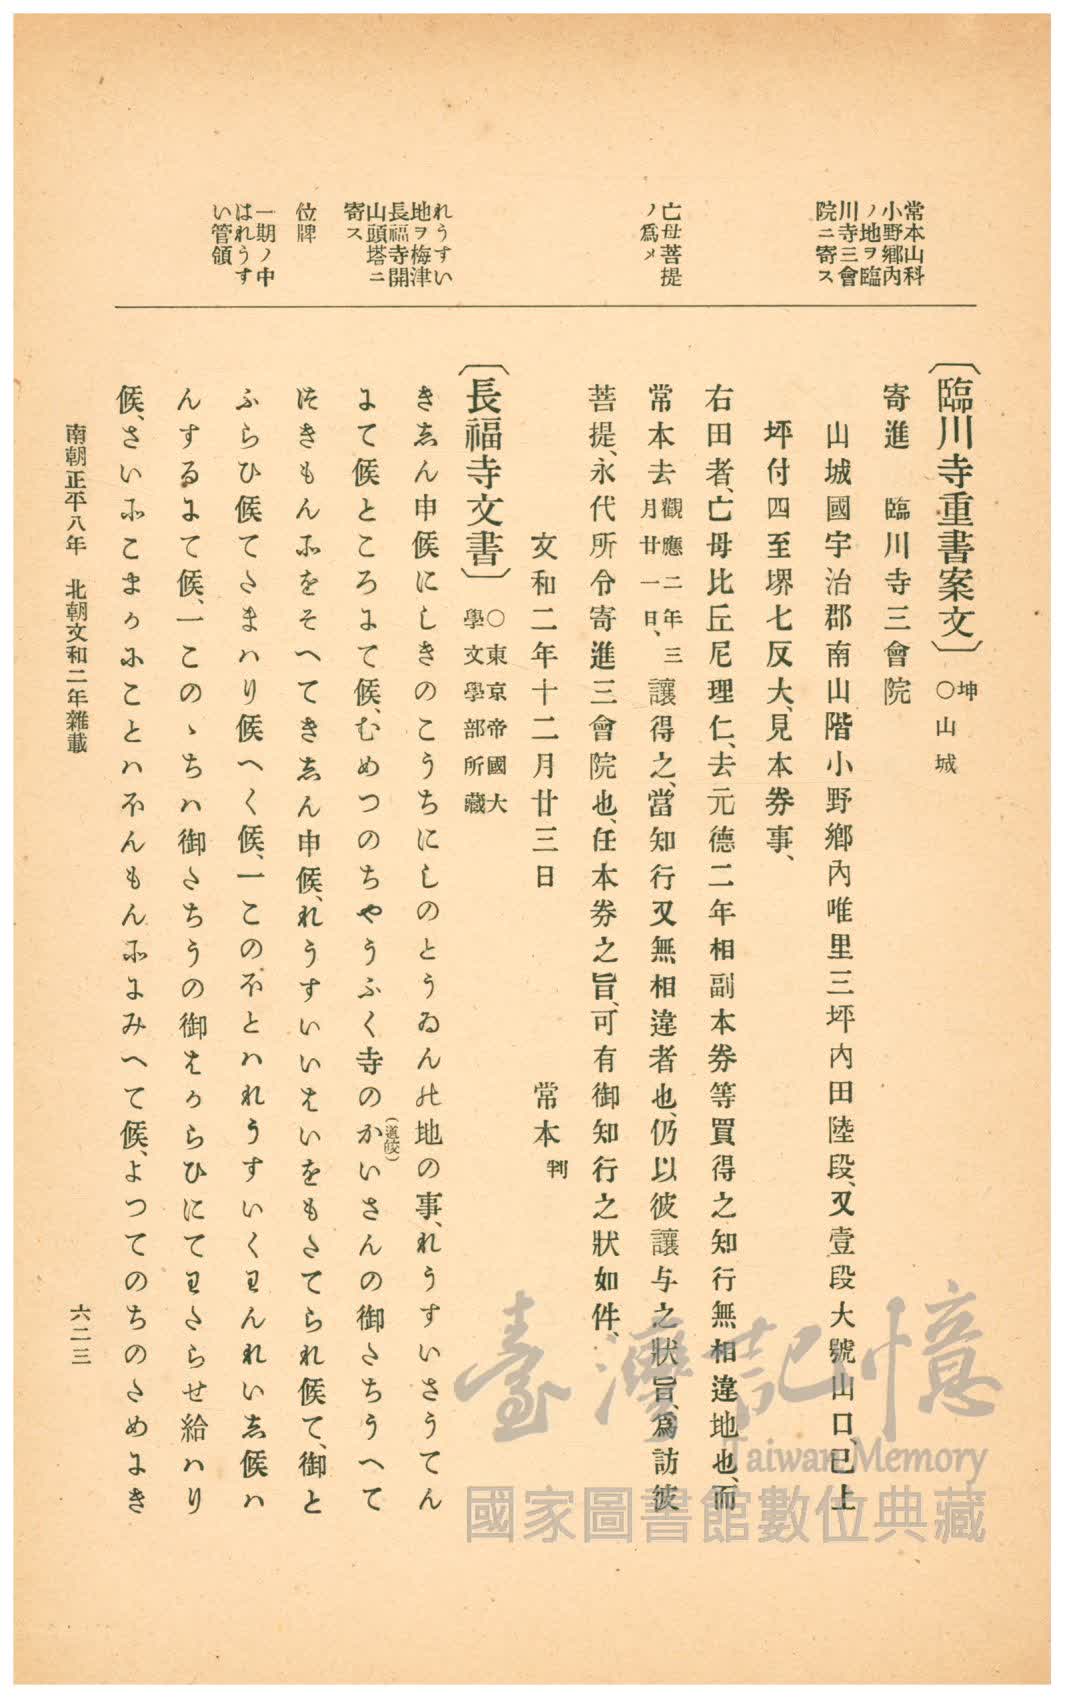 常本山科
小野鄕內
ノ地ヲ臨
川寺三會
院ニ寄ス
亡母菩提
ノ爲メ
れうすい
地ヲ梅津
長福寺開
山頭塔ニ
寄ス
位牌
一期ノ中
はれうす
い管領
〔臨川寺重書案文〕坤
○山城
寄進　臨川寺三會院
山城國宇治郡南山階小野鄕內唯里三坪內田陸段、又壹段大號山口、已上
坪付四至堺七反大、見本券事、
右田者、亡母比丘尼理仁、去元德二年相副本券等買得之知行無相違地也、而
常本去觀應二年三月廿一日、讓得之、當知行又無相違者也、仍以彼讓与之狀旨、爲訪彼
菩提、永代所令寄進三會院也、任本券之旨、可有御知行之狀如件、
文和二年十二月廿三日　常本判
〔長福寺文書〕○東京帝國大
學文學部所藏
きゑん申候にしきのこうちにしのとうゐんの地の事、れうすいさうてん
にて候ところにて候、むめつのちやうふく寺のかいさんの御たちうへて
(道皎)
けきもんをそへてきゑん申候、れうすいいはいをもたてられ候て、御と
ふらひ候てたまハり候へく候、一このほとハれうすいくわんれいゑ候ハ
んするにて候、一このゝちハ御たちうの御はからひにてわたらせ給ハり
候、さいふこまかにことハほんもんにみへて候、よつてのちのためにき
南朝正平八年　北朝文和二年雜載
六二三
臺灣記憶
Taiwan Memory
國家圖書館數位典藏